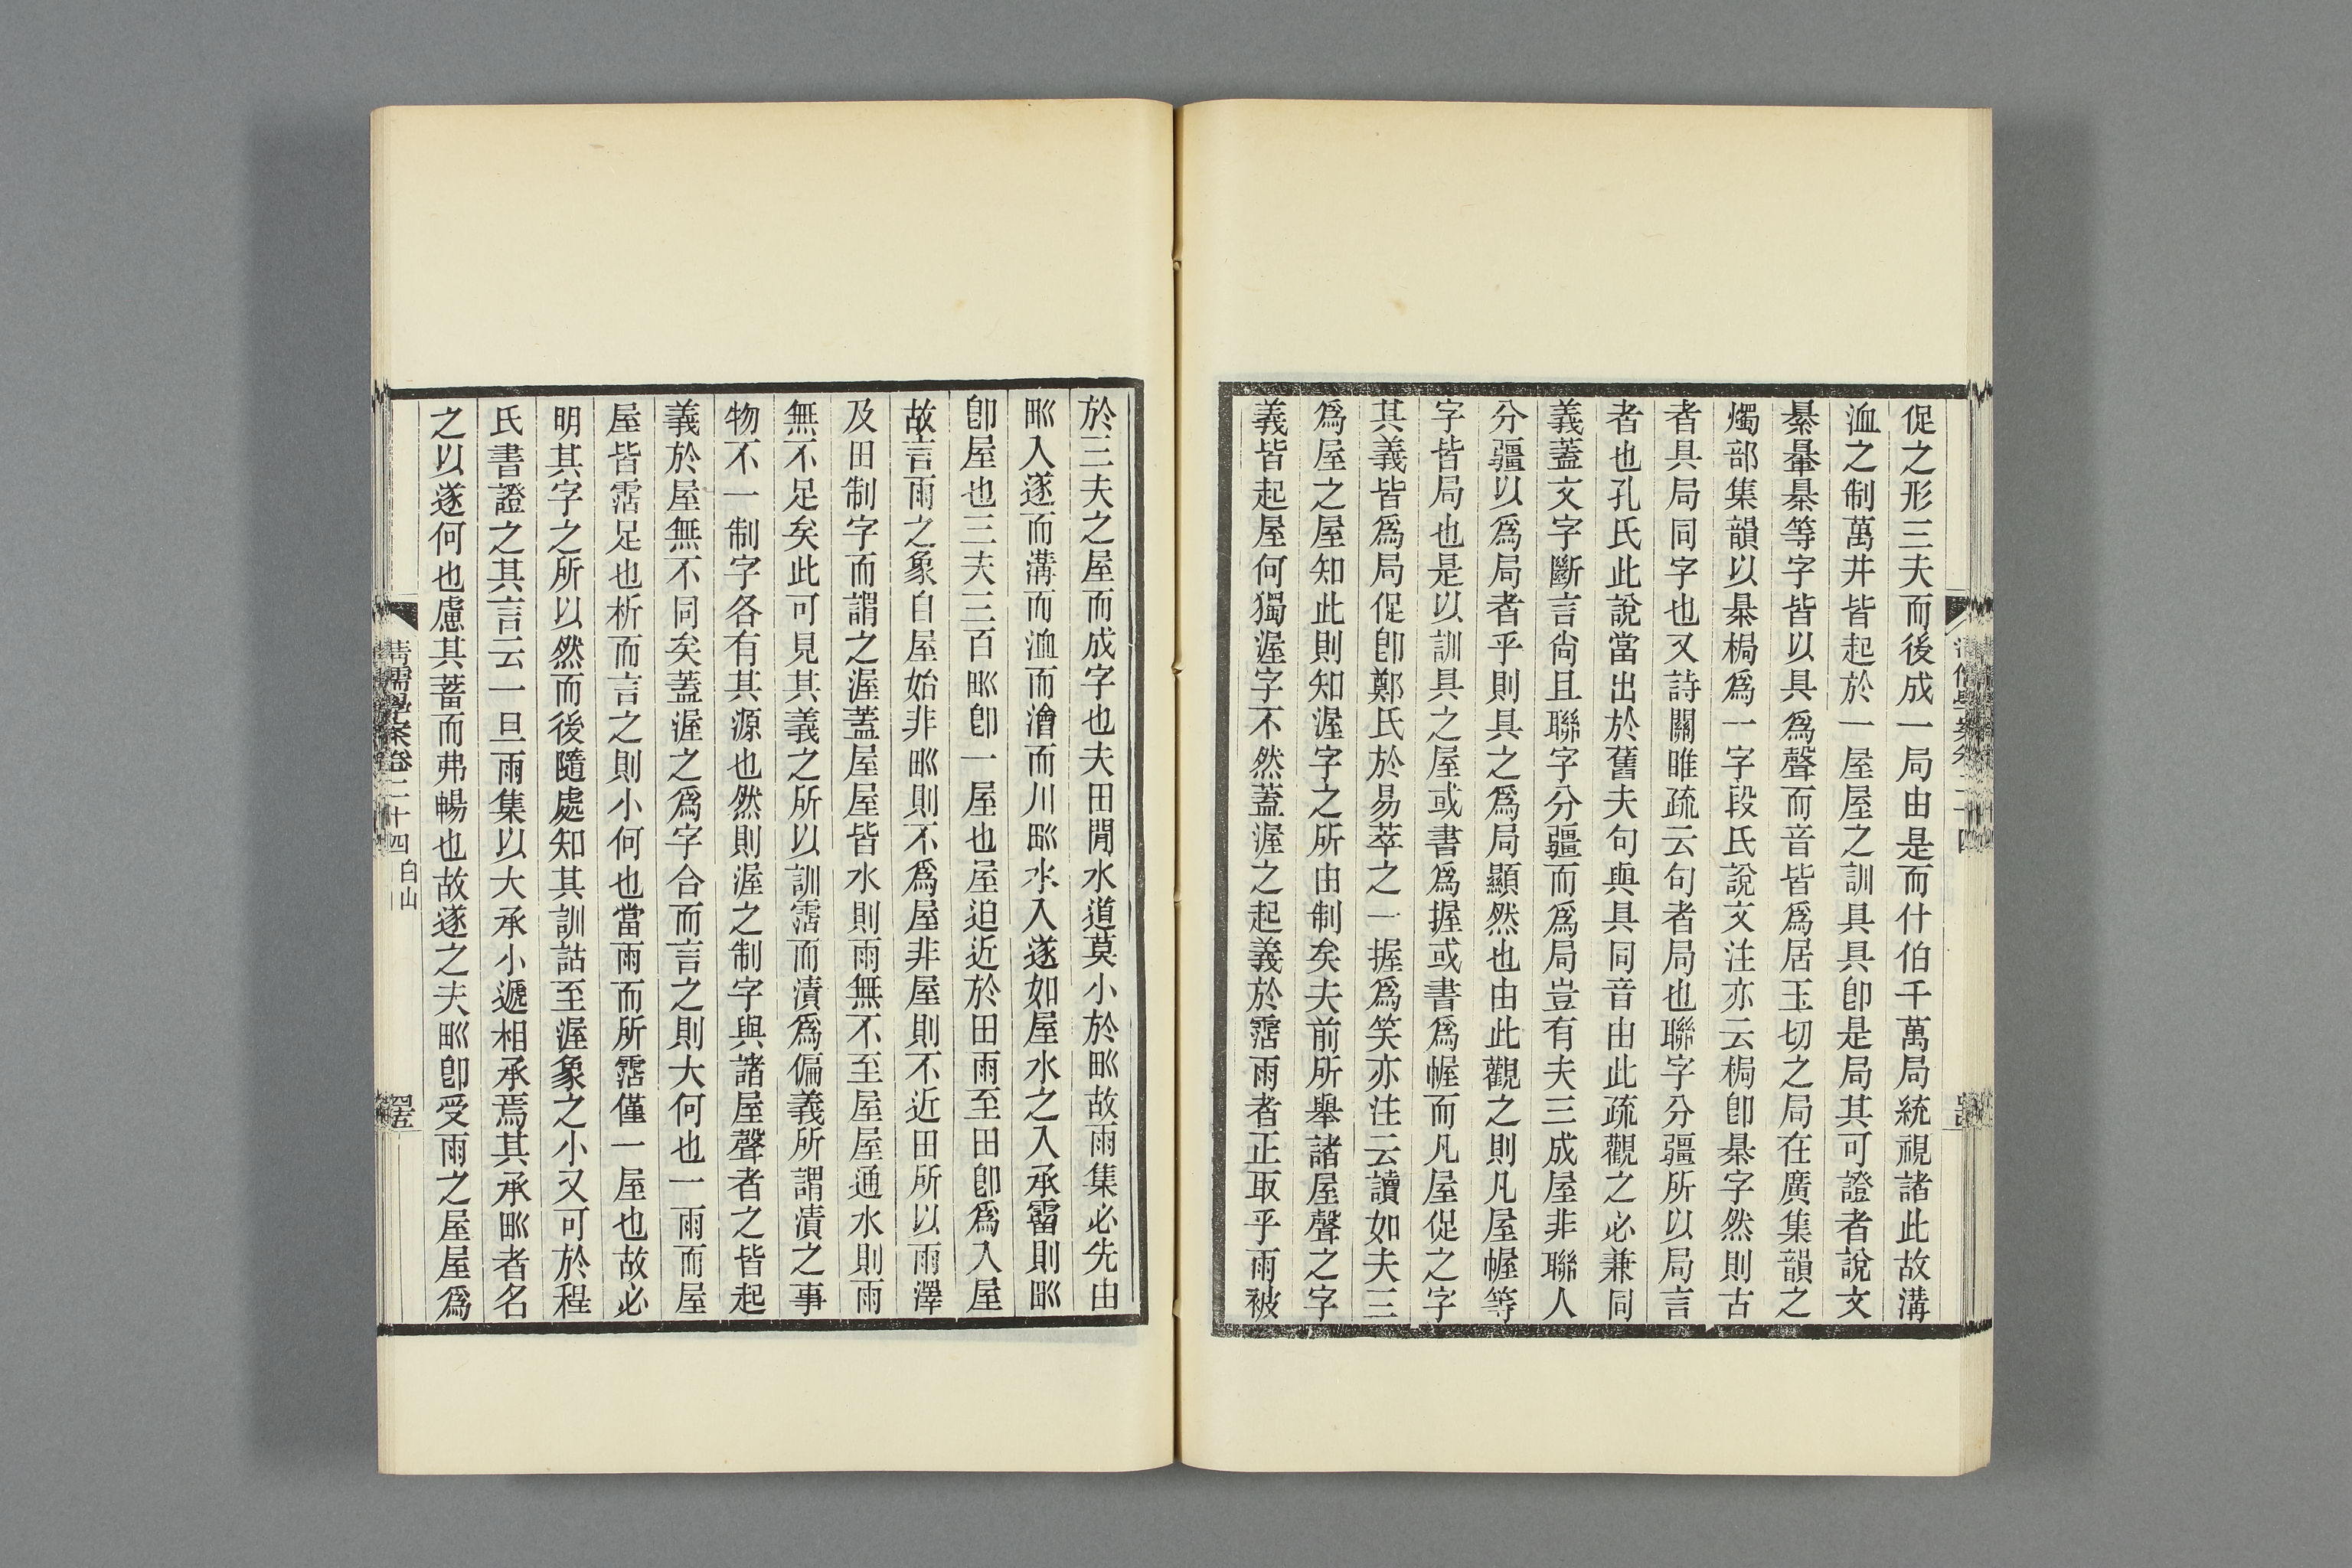 促之形三夫而後成一局由是而什伯千萬局統視諸此故溝
洫之制萬井皆起於一屋屋之訓具具卽是局其可證者說文
暴等字皆以具爲聲而音皆爲居玉切之局在廣集韻之
燭部集韻以梮爲一字段氏說文注亦云梮卽字然則古
者具局同字也又詩關雎疏云句者局也聯字分疆所以局言
者也孔氏此說當出於舊夫句與具同音由此疏觀之必兼同
義蓋文字斷言尙且聯字分疆而爲局豈有夫三成屋非聯人
分疆以爲局者乎則具之爲局顯然也由此觀之則凡屋幄等
字皆局也是以訓具之屋或書爲握或書爲幄而凡屋促之字
其義皆爲局促卽鄭氏於易萃之一握爲笑亦注云讀如夫三
爲屋之屋知此則知渥字之所由制矣夫前所舉諸屋聲之字
義皆起屋何獨渥字不然蓋渥之起義於霑雨者正取乎雨被
於三夫之屋而成字也夫田閒水道莫小於甽故雨集必先由
甽入遂而溝而洫而澮而川甽水入遂如屋水之入承霤則甽
卽屋也三夫三百甽卽一屋也屋迫近於田雨至田卽爲入屋
故言雨之象自屋始非甽則不爲屋非屋則不近田所以雨澤
及田制字而謂之渥蓋屋屋皆水則雨無不至屋屋通水則雨
無不足矣此可見其義之所以訓霑而漬爲偏義所謂漬之事
物不一制字各有其源也然則渥之制字與諸屋聲者之皆起
義於屋無不同矣蓋渥之爲字合而言之則大何也一雨而屋
屋皆霑足也析而言之則小何也當雨而所霑僅一屋也故必
明其字之所以然而後隨處知其訓詁至渥象之小又可於程
氏書證之其言云一旦雨集以大承小遞相承焉其承甽者名
之以遂何也慮其蓄而弗暢也故遂之夫甽卽受雨之屋屋爲
清儒學案卷二十四 白山